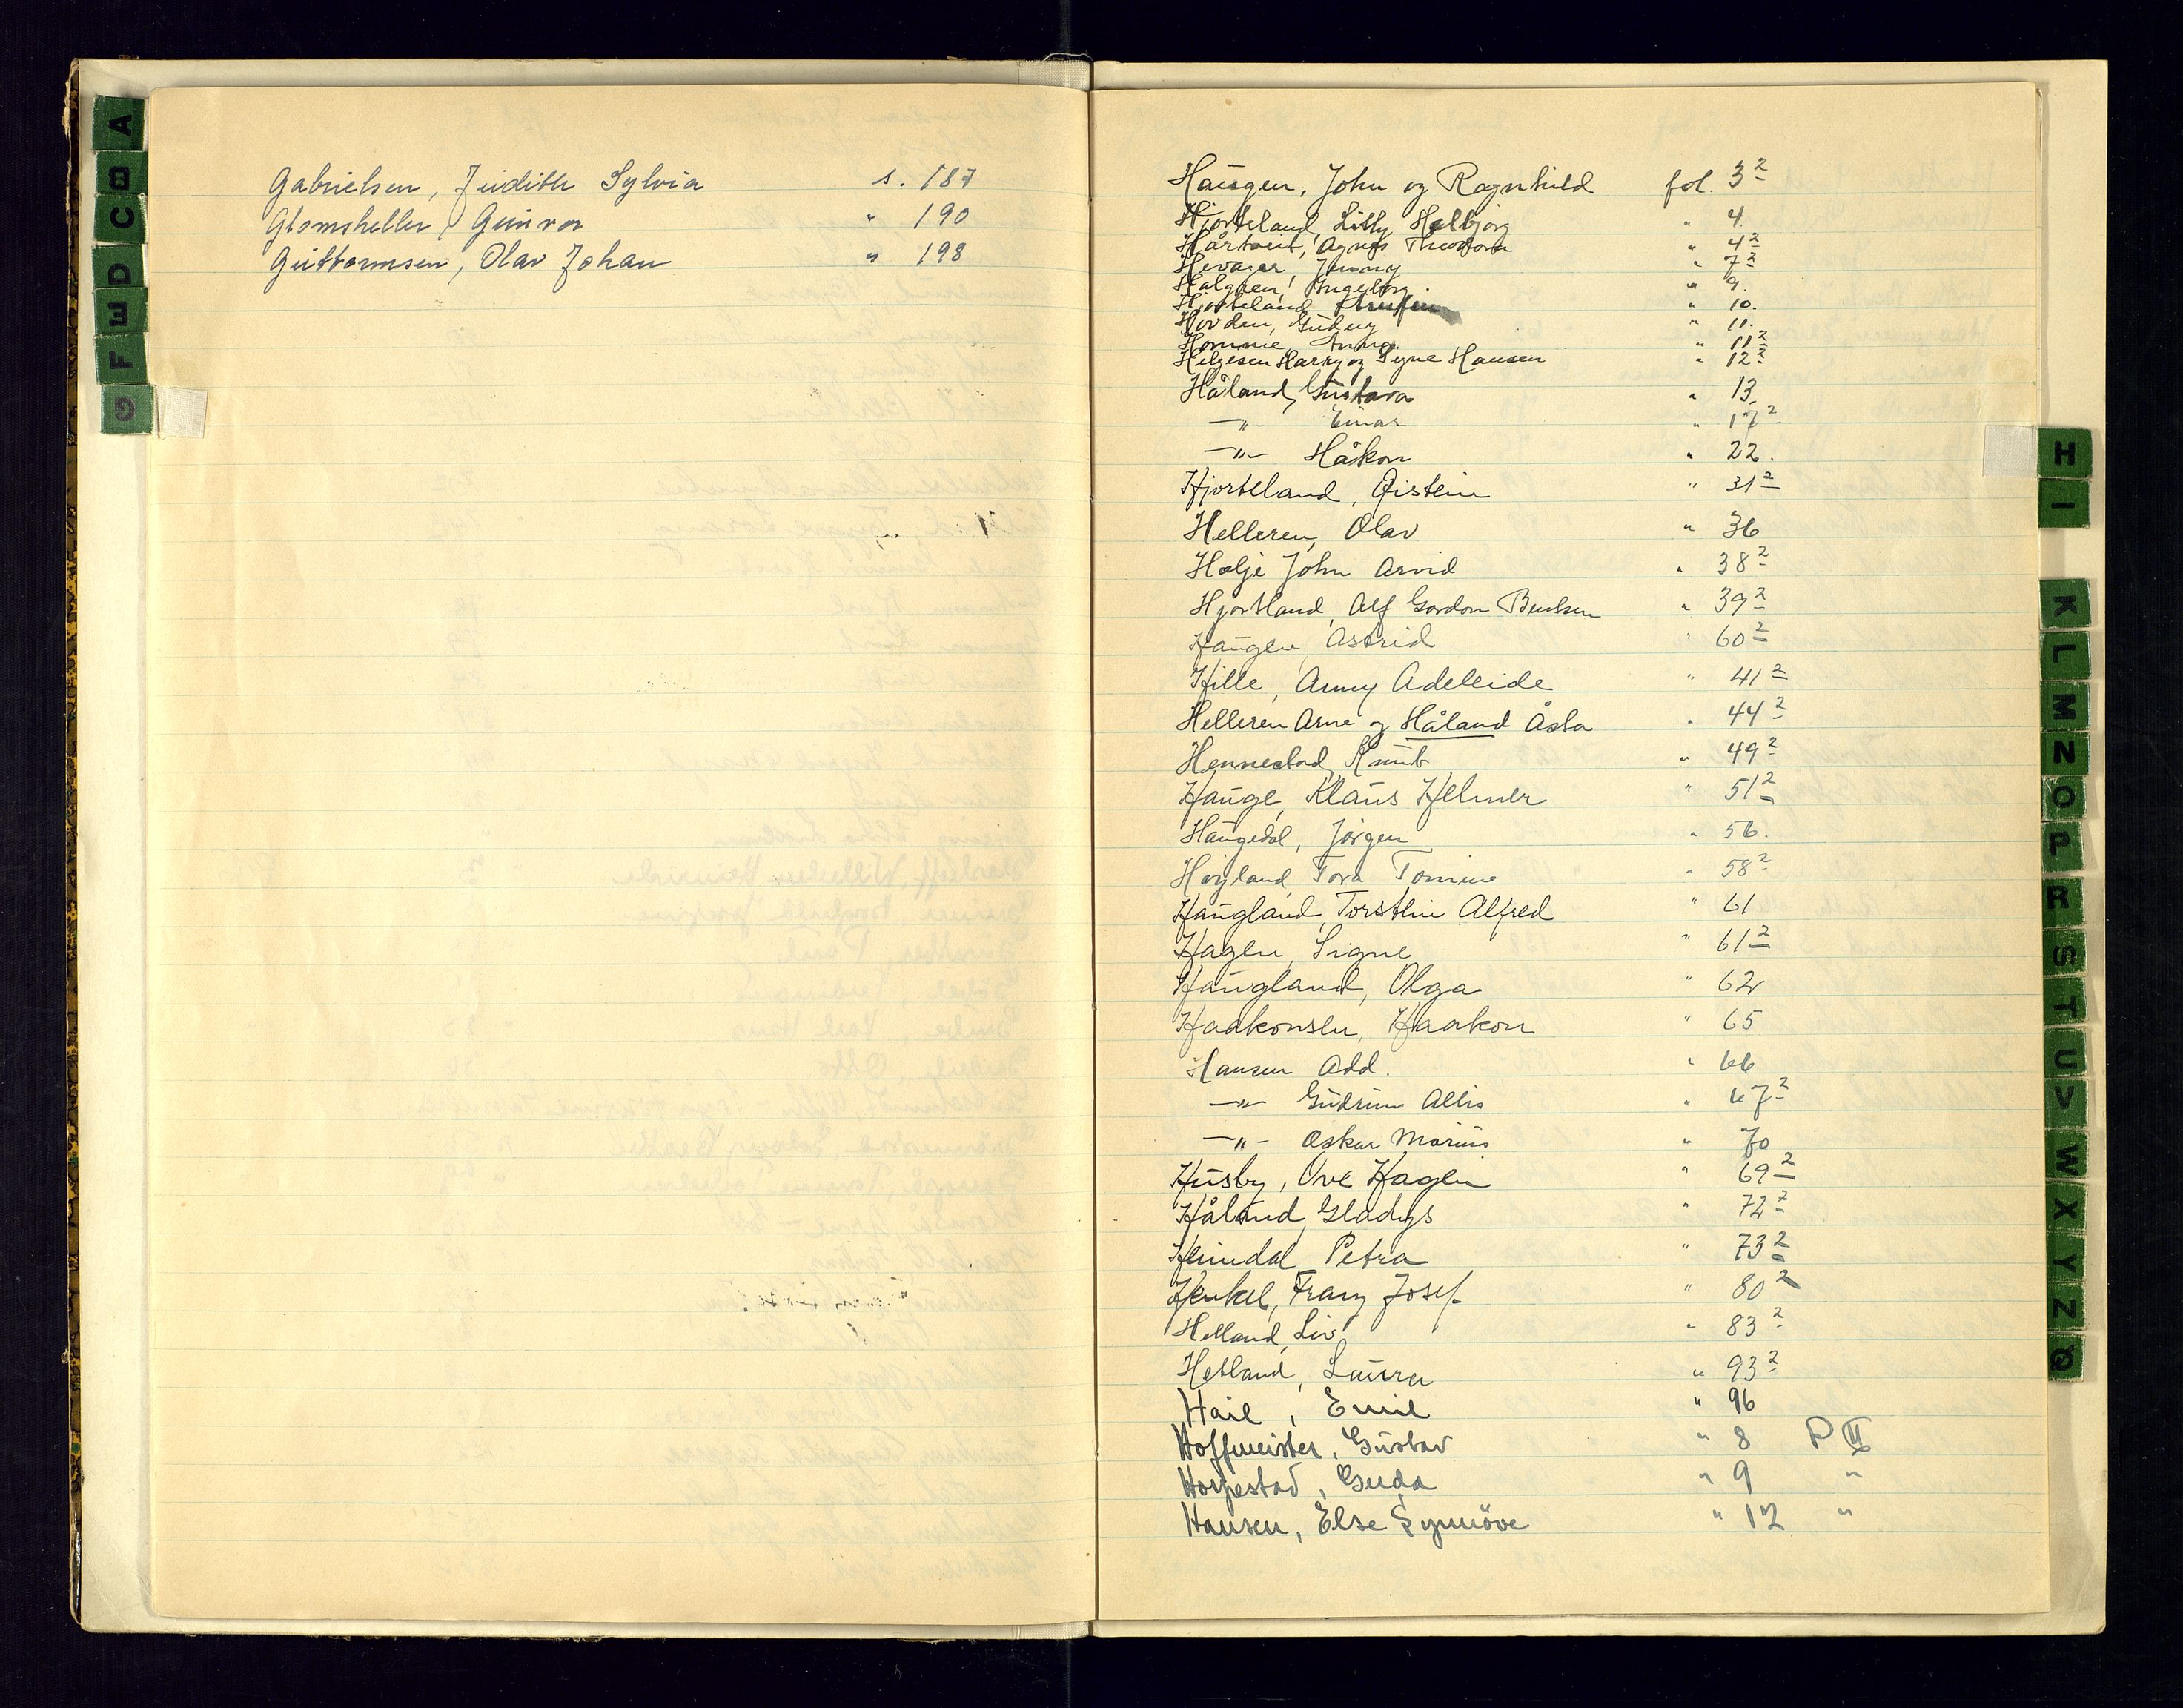 Gabrielsen, Judith Sylvia s. 187
Glomsheller, Gunvor " 190
Guttormsen, Olav Johan " 198
A
B
C
D
E
F
G
Haugen, John og Ragnhild fol. 3²
Hjorteland, Lilly Holbjørg " 4.
Hårtveit, Agnes Theodora " 4²
Hevager, Jenny " 7²
Ingeborg " 9.
Hjorteland " 10.
Hovden, Gudny " 11.
Homme, Anna " 11²
Helgesen Harry og Signe Hansen " 12²
Håland, Gustava " 13
—"— Einar " 17²
—"— Håkon " 22.
Hjorteland, Øistein " 31²
Helleren, Olav " 36
Helje John Arvid " 38²
Hjortland, Alf Gordon Bentsen " 39²
Haugen, Astrid " 60²
Hille, Anny Adeleide " 41²
Helleren Arne og Håland Åsta " 44²
Hennestad, Knut " 49²
Hauge, Klaus Helmer " 51²
Haugedal, Jørgen " 56.
Høyland, Tora Tomine " 58²
Haugland, Torstein Alfred " 61
Hagen, Signe " 61²
Haugland, Olga " 62
Haakonsen, Haakon " 65
Hansen Odd. " 66
—"— Gudrun Allis " 67²
—"— Oskar Marius " 70
Husby, Ove Hagen " 69²
Håland, Gladys " 72²
Heimdal Petra " 73²
Henkel, Franz Josef " 80²
Helland, Liv " 83²
Hetland, Laura " 93²
Hail, Emil " 96
Hoffmeister, Gustav " 8 P II
Horpestad, Guda " 9 "
Hansen, Else Synnöve " 12 "
H
I
K
L
M
N
O
P
R
S
T
U
V
W
X
Y
Z
Q